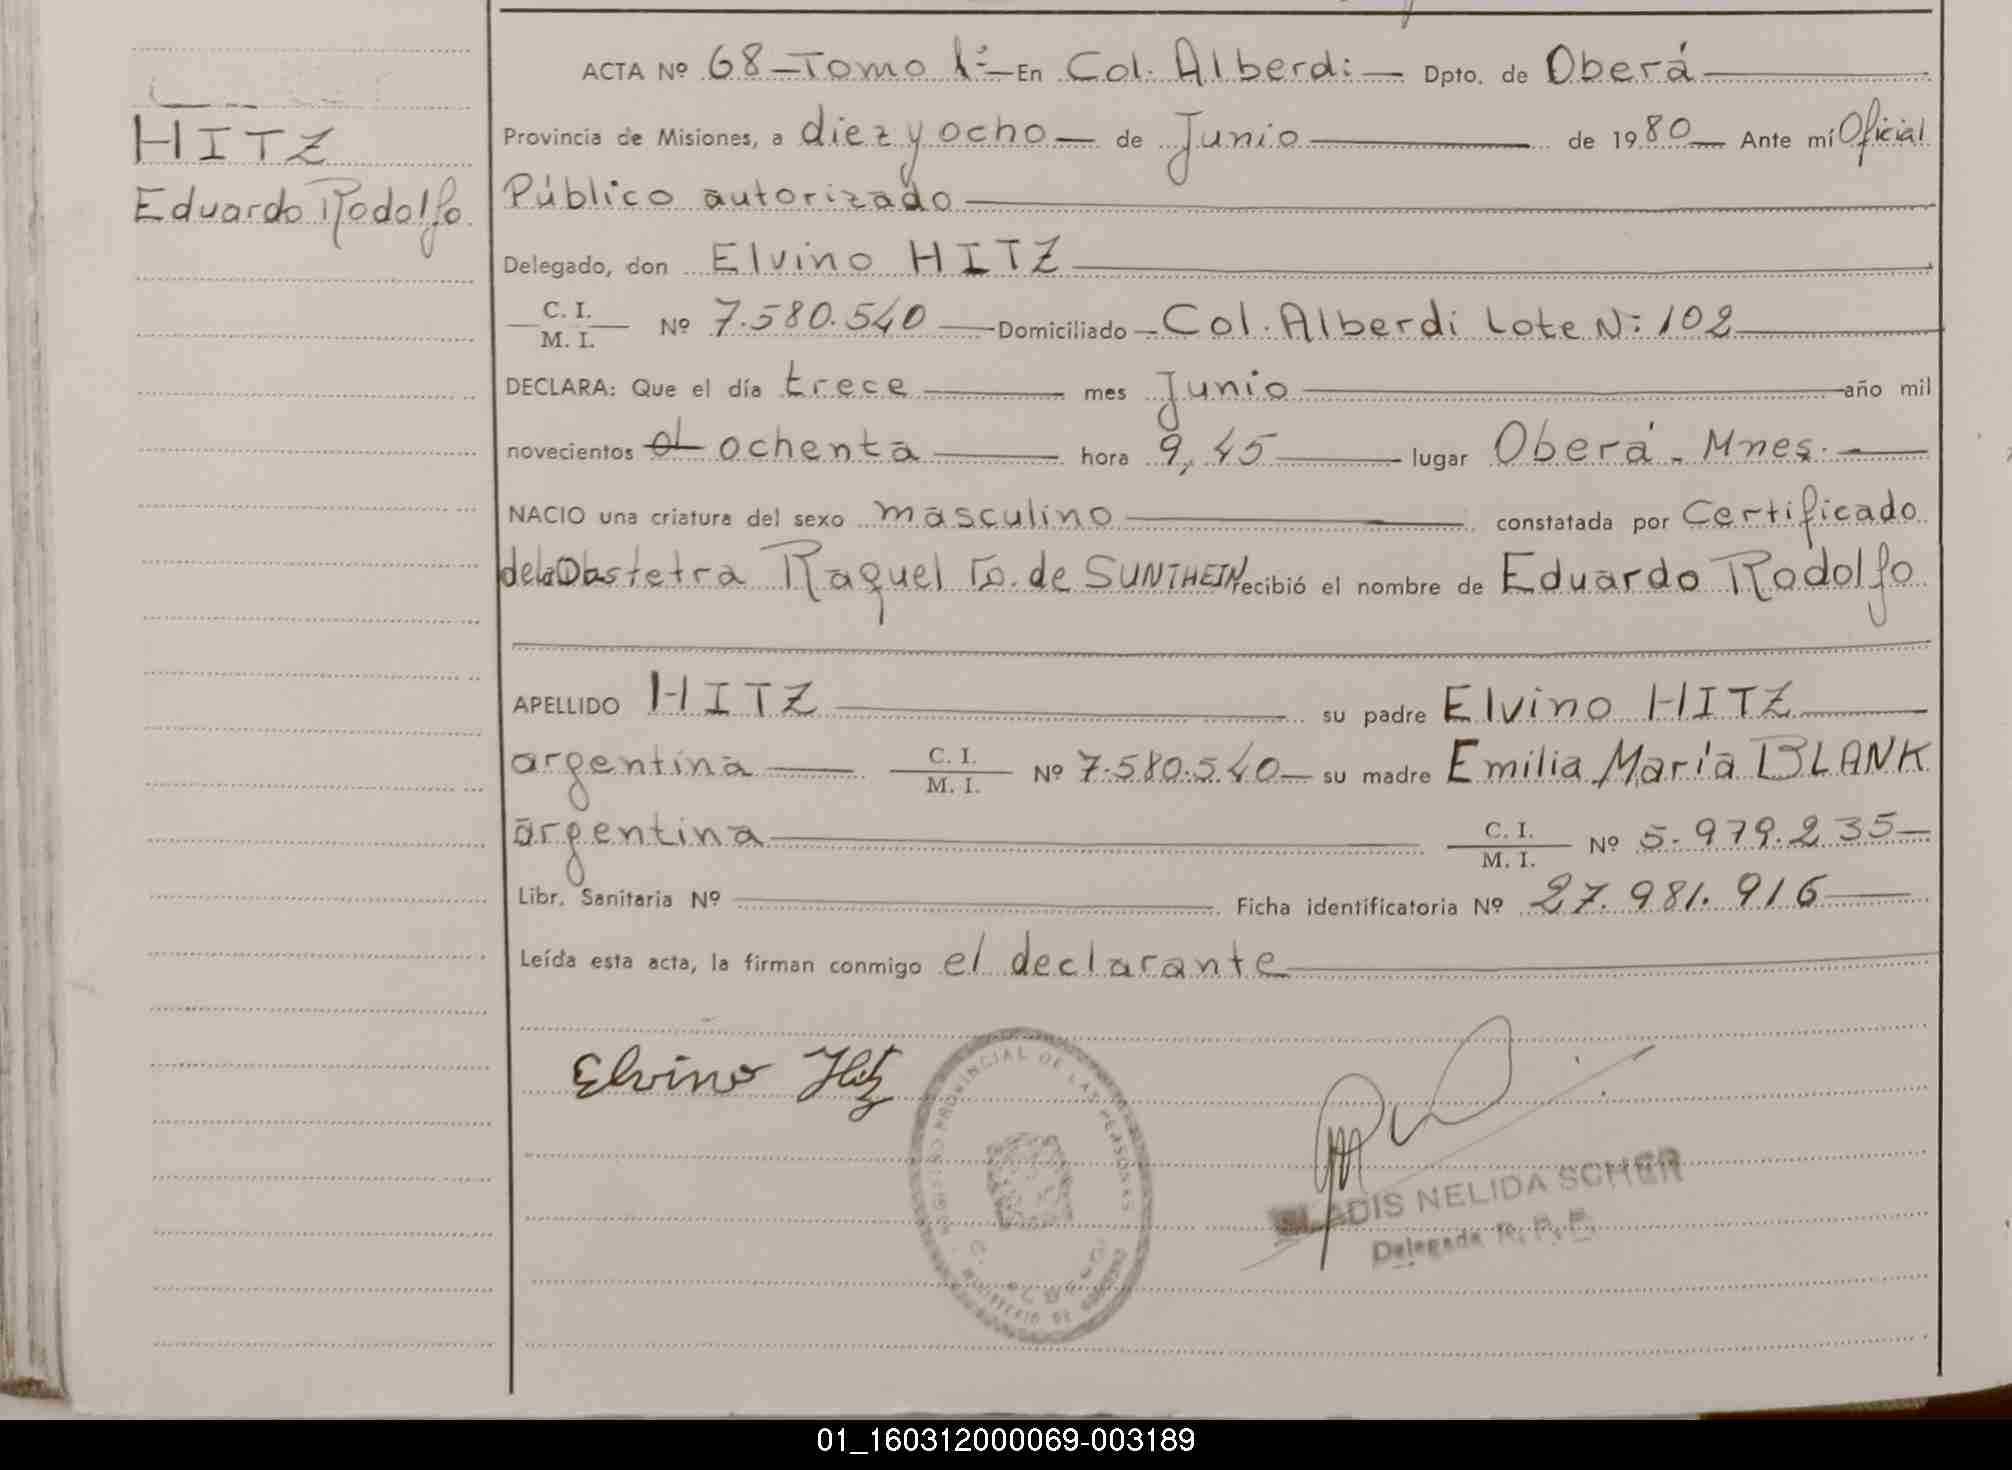 HITZ
Eduardo Rodolfo
ACTA Nº 68-Tomo 1º- En Col. Alberdi - Dpto. de Oberá
Provincia de Misiones, a diez y ocho - de Junio de 1980 - Ante mí Oficial
Público autorizado
Delegado, don Elvino HITZ
C. I.
M. I. Nº 7.580.540 Domiciliado - Col. Alberdi Lote Nº 102
DECLARA: Que el día trece mes Junio año mil
novecientos ochenta hora 9,45 lugar Oberá - Mnes.
NACIO una criatura del sexo masculino constatada por Certificado
de la Obstetra Raquel de SUNTHEIN recibió el nombre de Eduardo Rodolfo
APELLIDO HITZ su padre Elvino HITZ
argentina C. I.
M. I. Nº 7.580.540 - su madre Emilia María BLANK
argentina C. I.
M. I. Nº 5.979.235
Libr. Sanitaria Nº Ficha identificatoria Nº 27.981.916
Leída esta acta, la firman conmigo el declarante
Elvino Hitz
REGISTRO PROVINCIAL DE LAS PERSONAS
NELIDA SCHER
Delegada R. P. P.
01_160312000069-003189